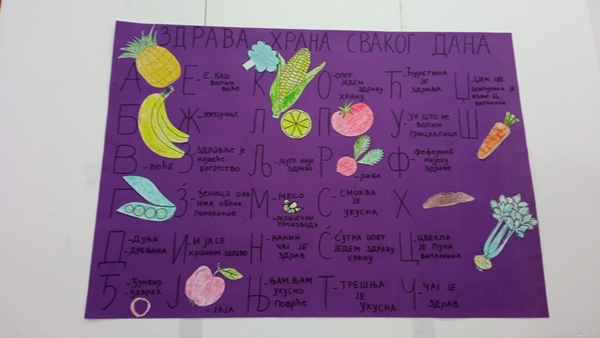 ЗДРАВА ХРАНА СВАКОГ ДАНА
А
Б
В - ВОЋЕ
Г
Д - ДУЊА
ДРЕЊИНА
Ђ - ЂУМБИР
- ЂЕВРЕК
Е - Е, БАШ
ВОЛИМ
ВОЋЕ
Ж - ЖИТАРИЦЕ
З ЗДРАВЉЕ ЈЕ
НАЈВЕЋЕ
БОГАТСТВО
З́ - З́ЕНИЦА ОВА
ИМА ОБЛИК
ПОМОРАНЏЕ
И - И ЈА СЕ
ХРАНИМ ЗДРАВО
Ј
- ЈАЈА
К
Л
Љ - ЉУТО НИЈЕ
ЗДРАВО
М - МЕСО
МЛИЈЕЧНИ
ПРОИЗВОДИ
Н - НАНИН
ЧАЈ ЈЕ
ЗДРАВ
Њ - ЊАМ, ЊАМ
УКУСНО
ПОВРЋЕ
О - ОПЕТ
ЈЕДЕМ ЗДРАВУ
ХРАНУ
П
Р
- РИБА
С - СМОКВА
ЈЕ
УКУСНА
С́ - С́УТРА ОПЕТ
ЈЕДЕМ ЗДРАВУ
ХРАНУ
Т - ТРЕШЊА
ЈЕ
УКУСНА
Ћ - ЋУРЕТИНА
ЈЕ
ЗДРАВА
У - УХ ШТО НЕ
ВОЛИМ
ГРИЦКАЛИЦЕ
Ф - ФЕФЕРОНИ
НИЈЕСУ
ЗДРАВЕ
Х
Ц - ЦВЕКЛА
ЈЕ ПУНА
ВИТАМИНА
Ч - ЧАЈ ЈЕ
ЗДРАВ
Џ - ЏЕМ ОД
ШИПУРКА ЈЕ
ПУН Ц
ВИТАМИНА
Ш